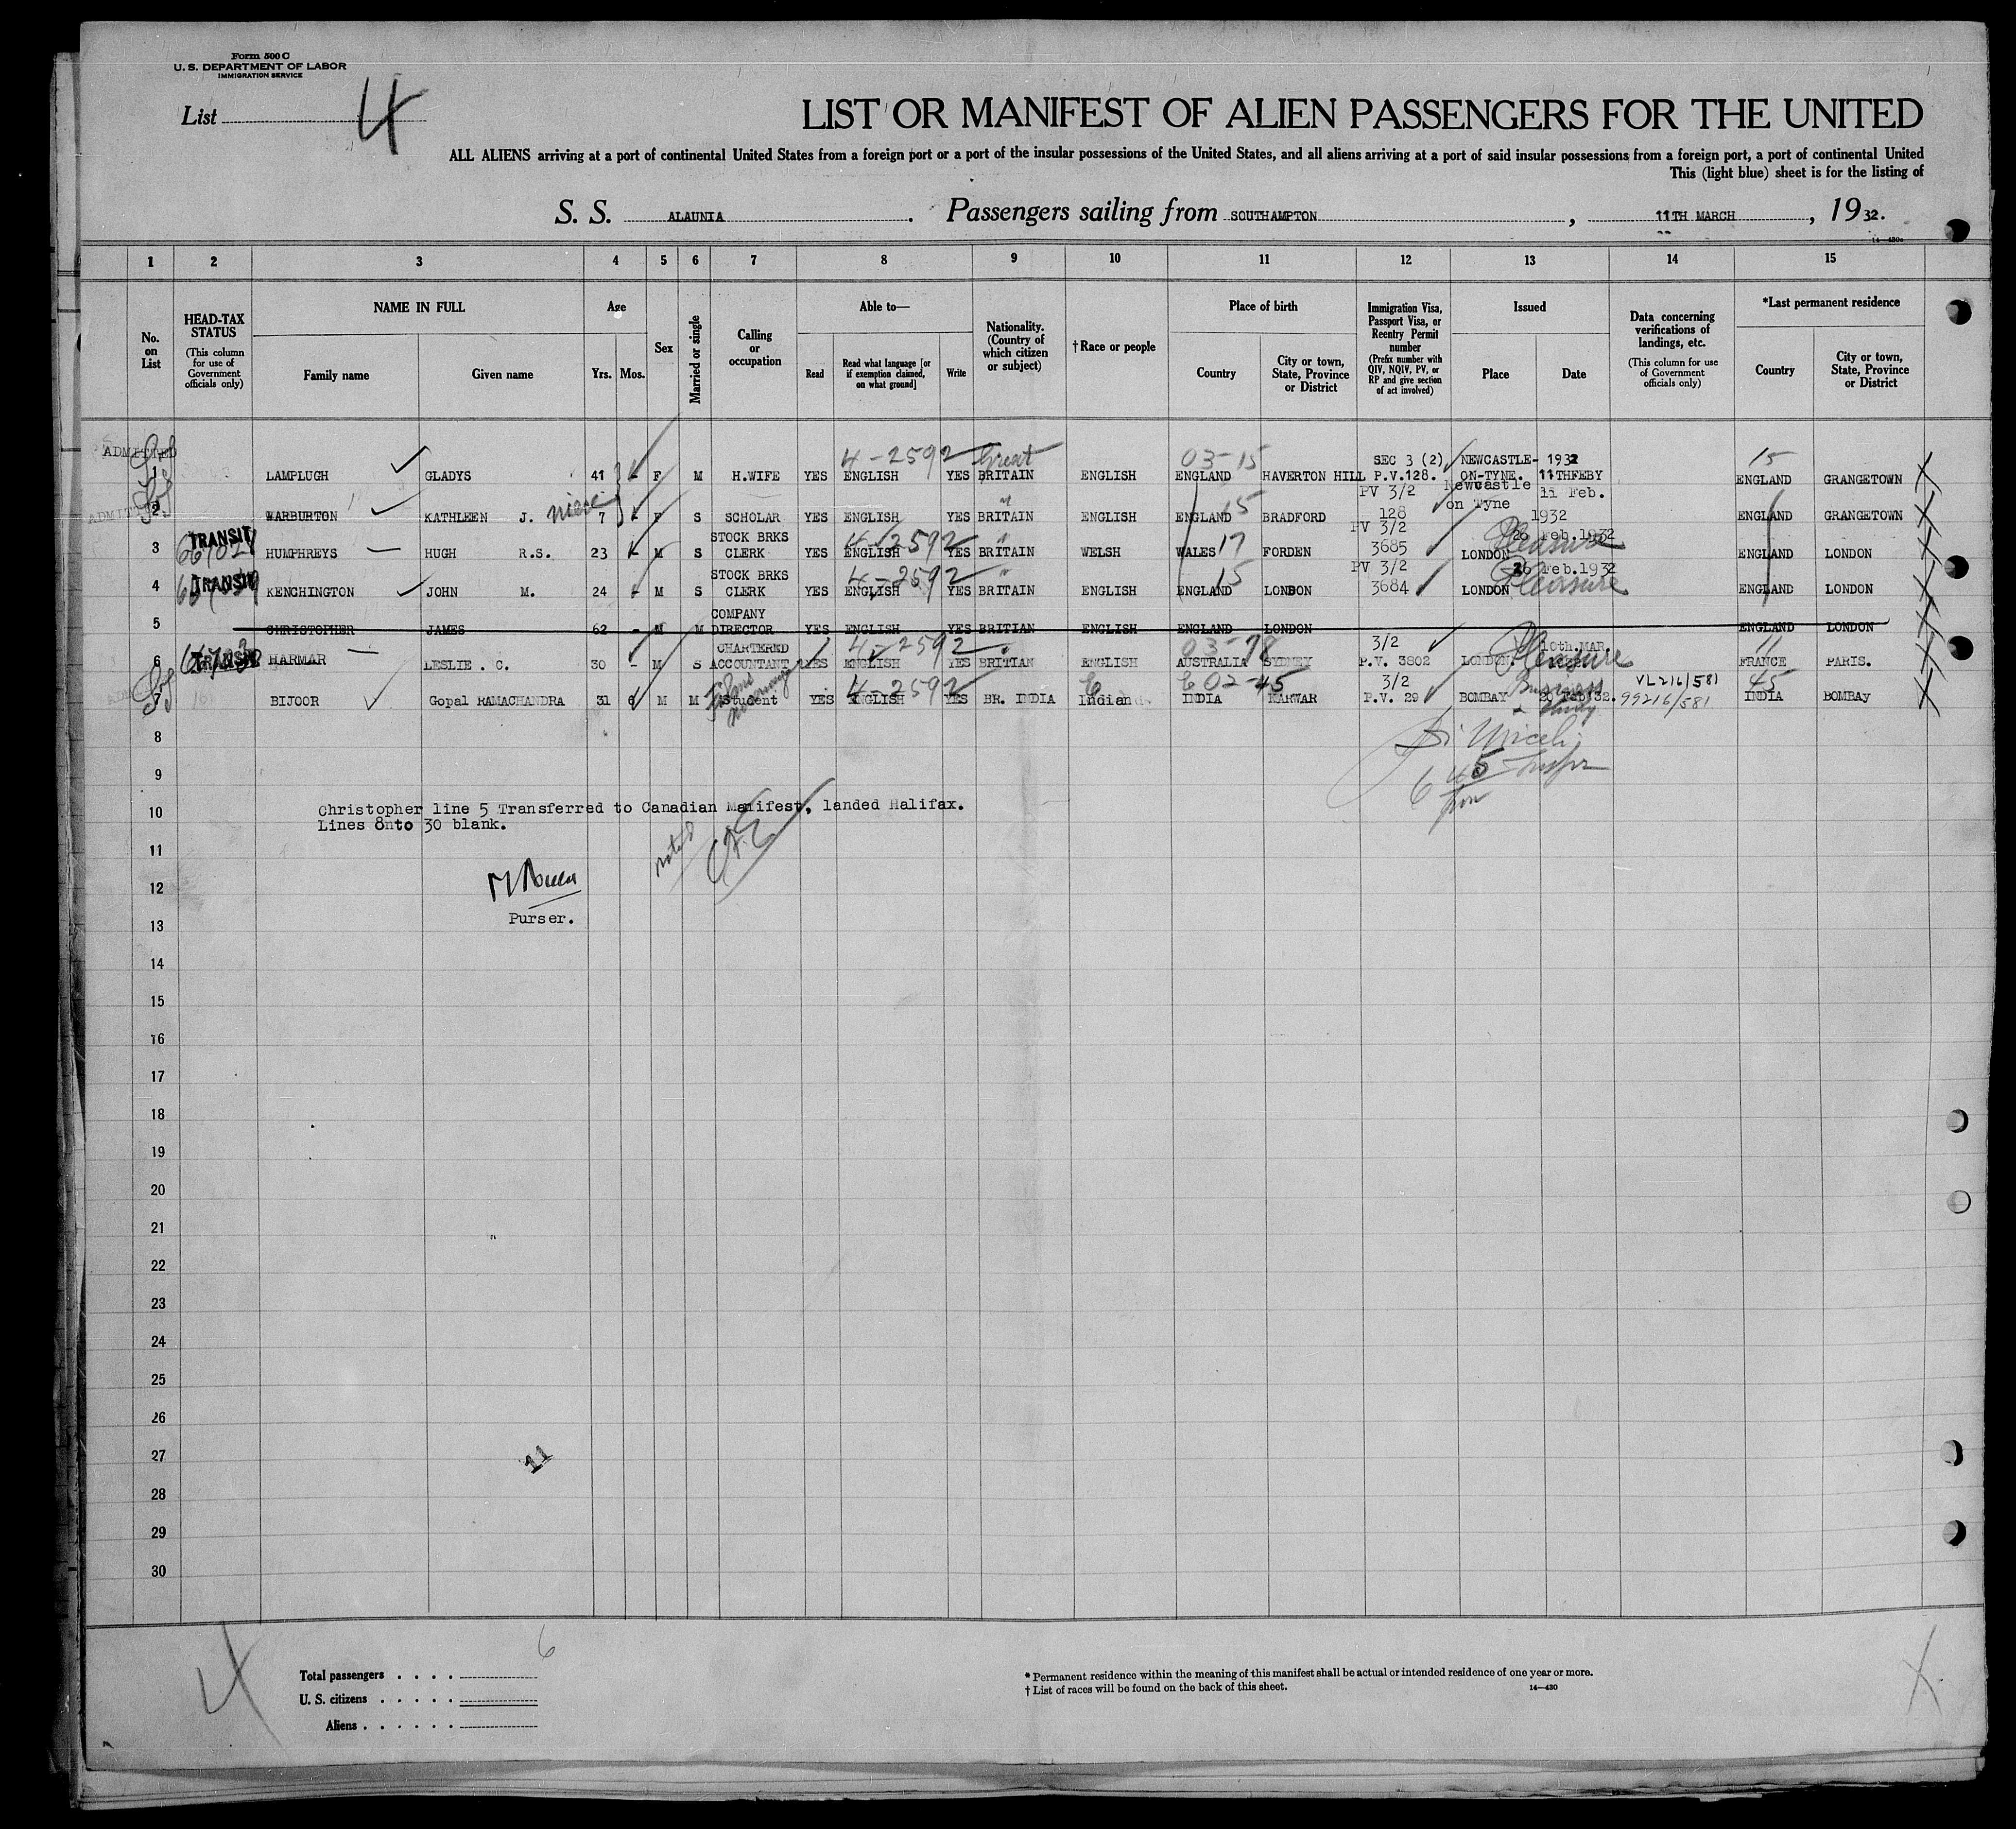 Form 500 C
U. S. DEPARTMENT OF LABOR
IMMIGRATION SERVICE
List 4
LIST OR MANIFEST OF ALIEN PASSENGERS FOR THE UNITED
ALL ALIENS arriving at a port of continental United States from a foreign port or a port of the insular possessions of the United States, and all aliens arriving at a port of said insular possessions from a foreign port, a port of continental United
This (light blue) sheet is for the listing of
S. S. ALAUNIA. Passengers sailing from SOUTHAMPTON, 11TH MARCH, 1932.
14-430c
1 2 3 4 5 6 7 8 9 10 11 12 13 14 15
No. on List
HEAD-TAX STATUS
(This column for use of Government officials only)
NAME IN FULL
Family name Given name
Age
Yrs. Mos.
Sex
Married or single
Calling or occupation
Able to—
Read
Read what language [or if exemption claimed, on what ground]
Write
Nationality. (Country of which citizen or subject)
†Race or people
Place of birth
Country
City or town, State, Province or District
Immigration Visa, Passport Visa, or Reentry Permit number
(Prefix number with QIV, NQIV, PV, or RP and give section of act involved)
Issued
Place Date
Data concerning verifications of landings, etc.
(This column for use of Government officials only)
*Last permanent residence
Country
City or town, State, Province or District
ADMITTED 4-2592 Great 03-15 SEC 3 (2) NEWCASTLE- 1932 15
1 LAMPLUGH GLADYS 41 - F M H.WIFE YES ENGLISH YES BRITAIN ENGLISH ENGLAND HAVERTON HILL P.V.128. ON-TYNE. 11THFEBY ENGLAND GRANGETOWN
niece " 15 PV 3/2 Newcastle 11 Feb.
2 WARBURTON KATHLEEN J. 7 - F S SCHOLAR YES ENGLISH YES BRITAIN ENGLISH ENGLAND BRADFORD 128 on Tyne 1932 ENGLAND GRANGETOWN
TRANSIT STOCK BRKS 4-2592 " 17 PV 3/2 26 Feb.1932 Pleasure
3 HUMPHREYS HUGH R.S. 23 - M S CLERK YES ENGLISH YES BRITAIN WELSH WALES FORDEN 3685 LONDON ENGLAND LONDON
TRANSIT STOCK BRKS 4-2592 " 15 PV 3/2 26 Feb.1932 Pleasure
4 KENCHINGTON JOHN M. 24 - M S CLERK YES ENGLISH YES BRITAIN ENGLISH ENGLAND LONDON 3684 LONDON ENGLAND LONDON
COMPANY
5 CHRISTOPHER JAMES 62 - M M DIRECTOR YES ENGLISH YES BRITIAN ENGLISH ENGLAND LONDON ENGLAND LONDON
TRANSIT CHARTERED 4-2592 " 03-78 3/2 10th.MAR. Pleasure 11
6 HARMAR LESLIE . C. 30 - M S ACCOUNTANT YES ENGLISH YES BRITIAN ENGLISH AUSTRALIA SYDNEY P.V. 3802 LONDON. FRANCE PARIS.
4-2592 02-45 3/2 Business VL216/581 45
7 BIJOOR Gopal RAMACHANDRA 31 6 M M Student YES ENGLISH YES BR. INDIA Indian INDIA KARWAR P.V. 29 BOMBAY 20 Feb'32. 99216/581 INDIA BOMBAY
8
9
10 Christopher line 5 Transferred to Canadian Manifest, landed Halifax.
Lines 8nto 30 blank.
11 noted
12
Purser.
13
14
15
16
17
18
19
20
21
22
23
24
25
26
27 11
28
29
30
Total passengers . . . . 6
U. S. citizens . . . . .
Aliens . . . . . .
* Permanent residence within the meaning of this manifest shall be actual or intended residence of one year or more.
† List of races will be found on the back of this sheet. 14—430